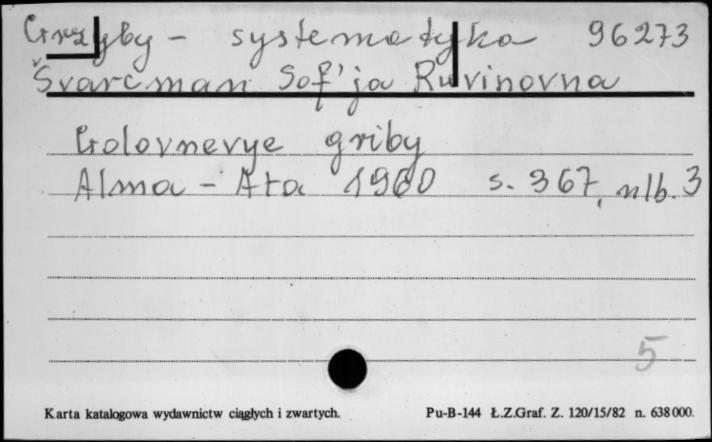 Grzyby - systematyka 96273
Švarcman Sof'ja Ruvinovna
Golovnevye griby
Alma - Ata 1960 s. 367, nlb. 3
5
Karta katalogowa wydawnictw ciągłych i zwartych.
Pu-B-144 Ł.Z.Graf. Z. 120/15/82 n. 638000.